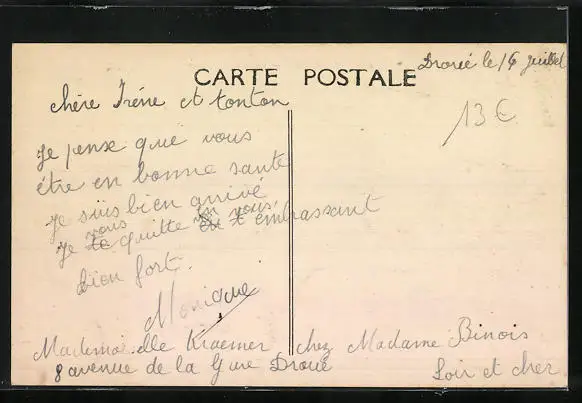 Droué le 16 juillet
CARTE POSTALE
chère Irène et tonton
13 €
Je pense que vous
étre en bonne santé
Je suis bien arrivé
Je vous quitte en vous embrassant
bien fort.
Monique
Mademoiselle Kraemer chez Madame Binois
8 avenue de la Gare Droué
Loir et cher